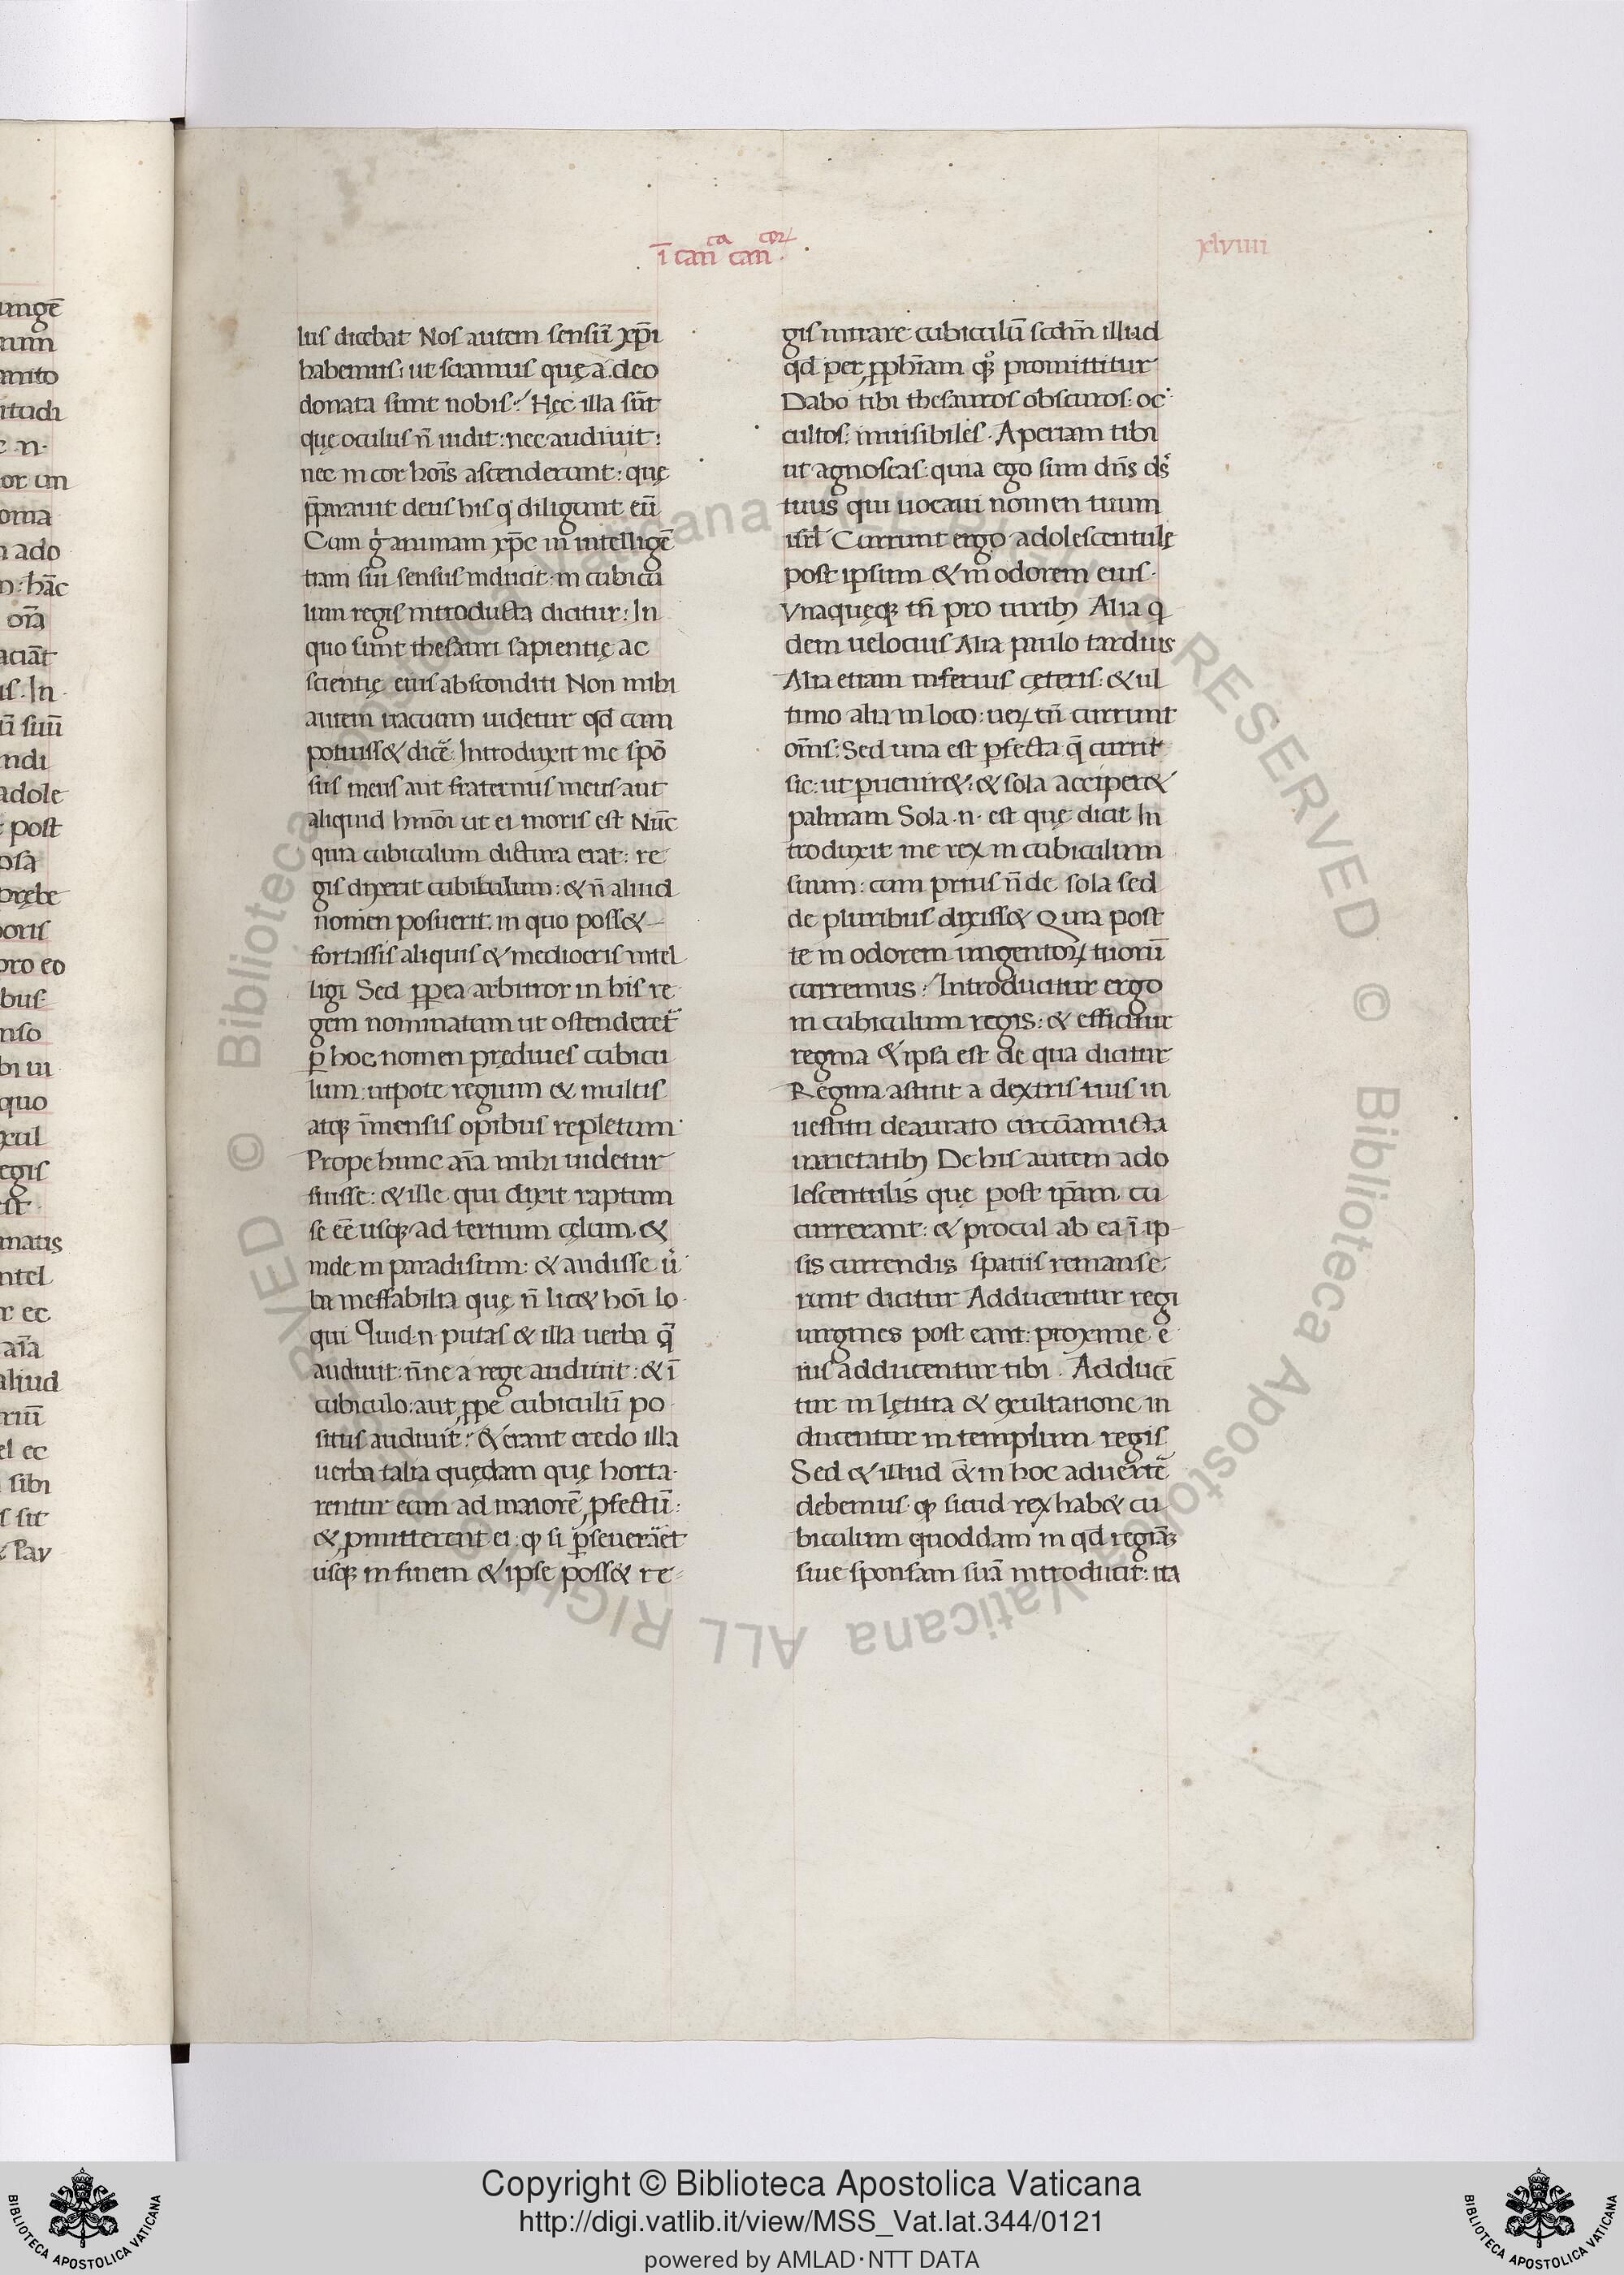 i can ca can cor
xlviiii
lus dicebat Nos autem sensū xp̄i
habemus: ut sciamus quę a deo
donata sunt nobis. Hęc illa sūt
quę oculus n̄ uidit: nec audiuit:
nec in cor hoīs ascenderunt: quę
p̄parauit deus his q diligunt eū
Cum ġ animam xp̄c in intelligē
tiam sui sensus inducit: in cubicu
lum regis introducta dicitur: In
quo sunt thesauri sapientię ac
scientię eius absconditi Non mihi
autem uacuum uidetur qd cum
potuiss& dicē: Introduxit me spō
sus meus aut fraternus meus aut
aliquid hmōi ut ei moris est Nūc
quia cubiculum dictura erat: re
gis dixerit cubiculum: & n̄ aliud
nomen posuerit. in quo poss&
fortassis aliquis & mediocris intel
ligi Sed ꝓpea arbitror in his re
gem nominatum ut ostenderet̄
ꝑ hoc nomen prędiues cubicu
lum: utpote regium & multis
atqꝫ īmensis opibus repletum
Prope hunc aīa mihi uidetur
fuisse: & ille qui dixit raptum
se eē usqꝫ ad tertium cęlum &
inde in paradisum: & audisse u
ba ineffabilia quę n̄ lic& hoī lo
qui Quid.n. putas & illa uerba q̄
audiuit: n̄ne a rege audiuit: & ī
cubiculo: aut ꝓpe cubiculū po
situs audiuit: & erant credo illa
uerba talia quędam quę horta
rentur eum ad maiorē ꝓfectū:
& ꝓmitterent ei: ꝙ si ꝑseuerāet
usqꝫ in finem & ipse poss& re
gis intrare cubiculū scdm̄ illud
qd per ꝓphīam qꝫ promittitur
Dabo tibi thesauros obscuros: oc
cultos: inuisibiles. Aperiam tibi
ut agnoscas: quia ego sum dn̄s ds̄
tuus qui uocaui nomen tuum
isrl̄ Currunt ergo adolescentulę
post ipsum & in odorem eius.
Vnaquęqꝫ tn̄ pro uiribꝫ Alia q
dem uelocius Alia paulo tardius
Alia etiam inferius cęteris: & ul
timo alia in loco: ueꝝ tn̄ currunt
om̄s: Sed una est ꝑfecta q̄ currit
sic: ut puenir&: & sola acciper&
palmam Sola .n. est quę dicit In
troduxit me rex in cubiculum
suum: cum prius n̄ de sola sed
de pluribus dixiss& Quia post
te in odorem ungentoꝝ tuorū
curremus: Introducitur ergo
in cubiculum regis: & efficitur
regina & ipsa est de qua dicitur
Regina astitit a dextris tuis in
uestitu deaurato circūamicta
uarietatibꝫ De his autem ado
lescentulis quę post ip̄am cu
currerant: & procul ab ea ī ip
sis currendis spatiis remanse
runt dicitur Adducentur regi
uirgines post eam: proximę e
ius adducentur tibi. Adducē
tur in lętitia & exultatione in
ducentur in templum regis
Sed & illud & in hoc aduertē
debemus ꝙ sicud rex hab& cu
biculum quoddam in qd reginā
siue sponsam suā introducit: ita
ungē
ado
hāc
In
adole
post
quo
regis
matis
aliud
sibi
sit
Pau
Copyright © Biblioteca Apostolica Vaticana
http://digi.vatlib.it/view/MSS_Vat.lat.344/0121
powered by AMLAD·NTT DATA
BIBLIOTECA APOSTOLICA VATICANA
BIBLIOTECA APOSTOLICA VATICANA
© Biblioteca Apostolica Vaticana ALL RIGHTS RESERVED © Biblioteca Apostolica Vaticana ALL RIGHTS RESERVED